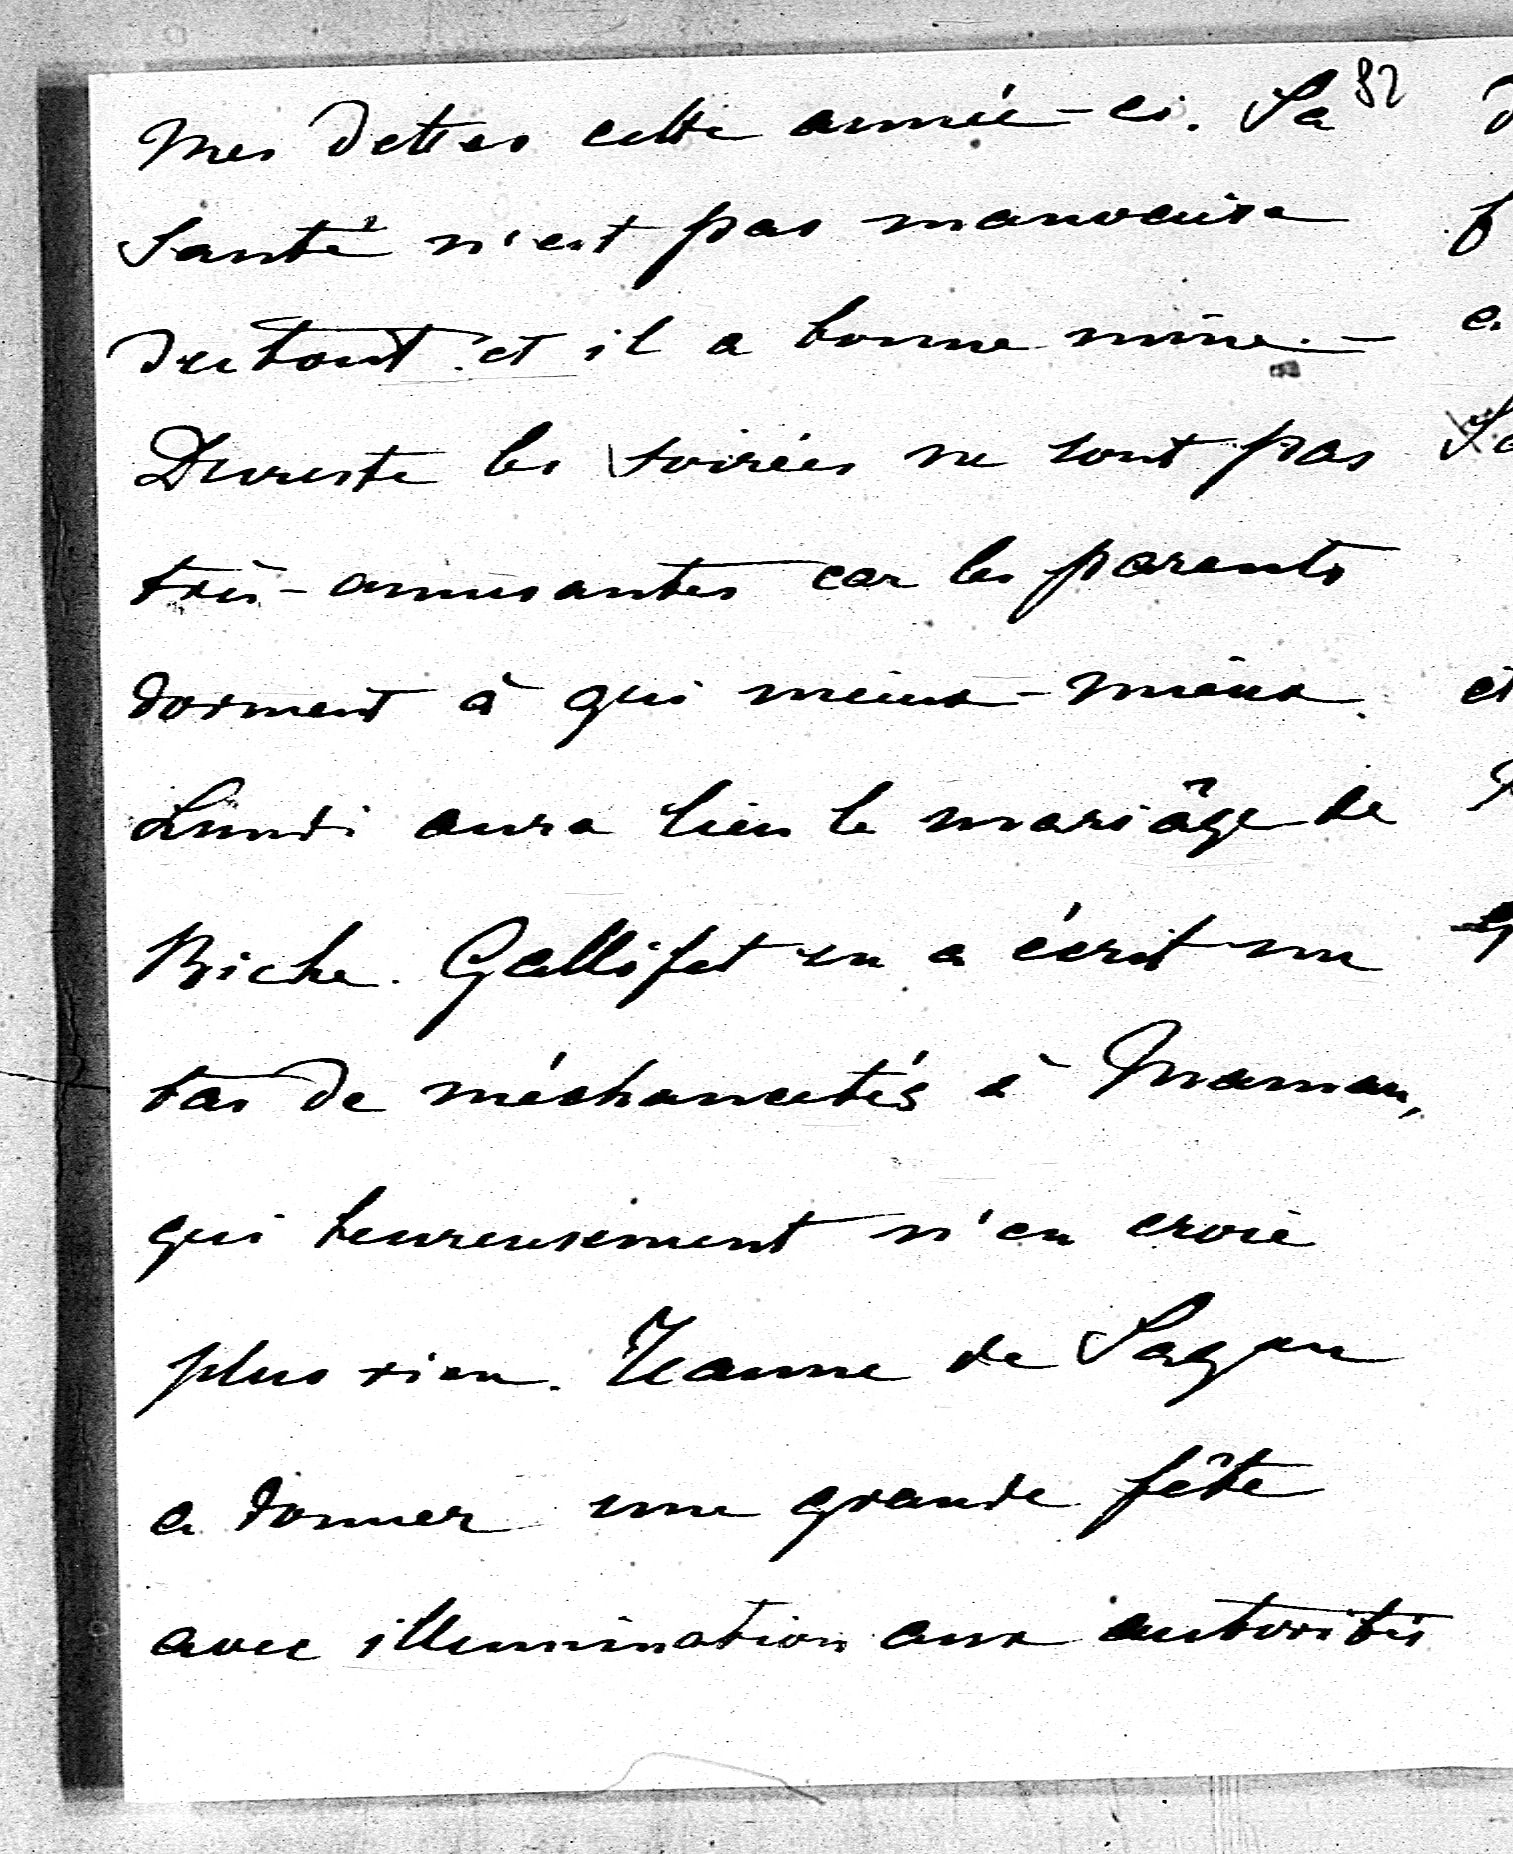 82
mes dettes cette année-ci. Sa
santé n'est pas mauvaise
du tout et il a bonne mine. –
Dureste les soirées ne sont pas
très-amusantes car les parents
dorment à qui mieux-mieux.
Lundi aura lieu le mariâge de
Biche. Gallifet en a écrit un
tas de méchancetés à Maman,
qui heureusement n'en croie
plus rien. Jeanne de Sagan
a donner une grande fête
avec illumination aux autorités